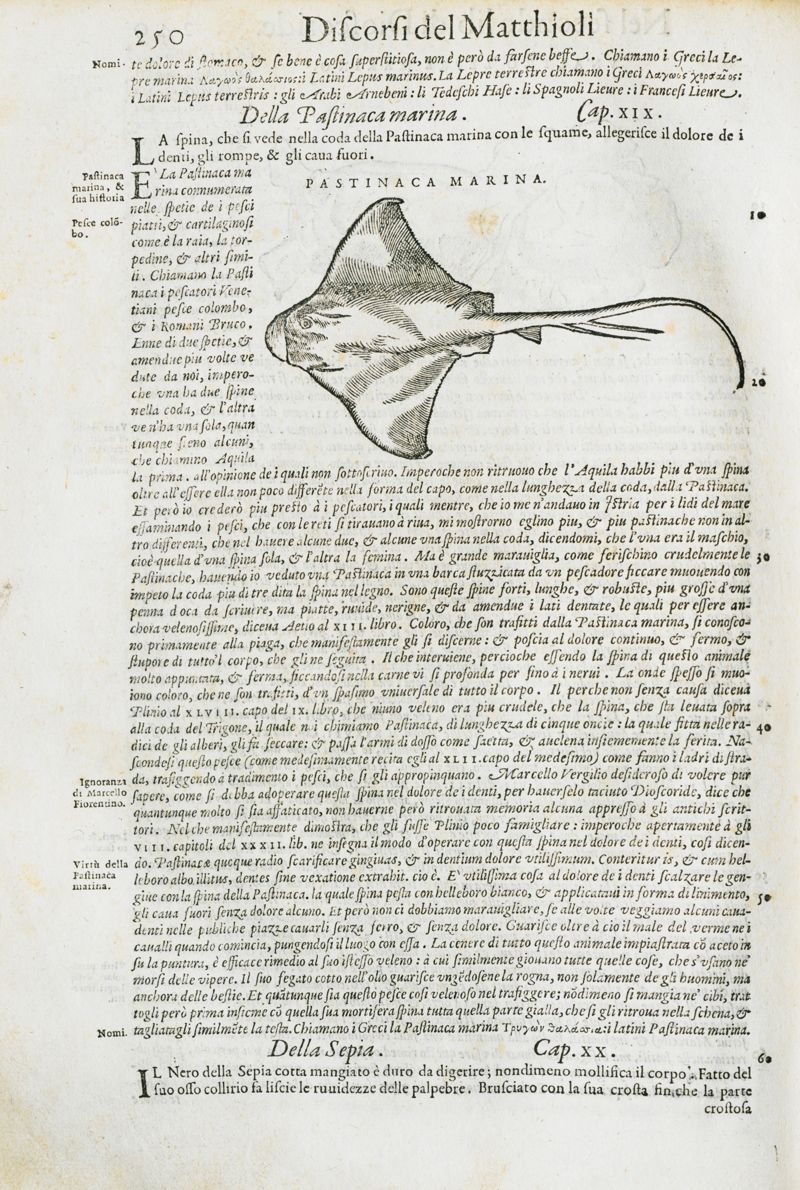 250 Diſcorſi del Matthioli
Nomi. te dolore di ſtomaco, & ſe bene è coſa ſuperſtitioſa, non è però da farſene beffe. Chiamano i Greci la Le-
pre marina Λαγωὸς θαλάσσιος: i Latini Lepus marinus. La Lepre terreſtre chiamano i Greci Λαγωὸς χερσαῖος:
i Latini Lepus terreſtris: gli Arabi Arnebeni: li Tedeſchi Haſe: li Spagnoli Lieure: i Franceſi Lieure.
Della Paſtinaca marina. Cap. XIX.
LA ſpina, che ſi vede nella coda della Paſtinaca marina con le ſquame, allegeriſce il dolore de i
denti, gli rompe, & gli caua fuori.
PASTINACA MARINA.
Paſtinaca
marina, &
ſua hiſtoria
Peſce colō-
bo.
E' La Paſtinaca ma
rina connumerata
nelle ſpetie de i peſci
piatti, & cartilaginoſi
come è la raia, la tor-
pedine, & altri ſimi-
li. Chiamano la Paſti
naca i peſcatori Vene-
tiani peſce colombo,
& i Romani Bruco.
Enne di due ſpetie, &
amendue piu volte ve
dute da noi, impero-
che vna ha due ſpine
nella coda, & l'altra
ve n'ha vna ſola, quan
tunque ſieno alcuni,
che chiamino Aquila
10
20
la prima. all'opinione de i quali non ſottoſcriuo. Imperoche non ritruouo che l'Aquila habbi piu d'vna ſpina
oltre all'eſſere ella non poco differēte nella forma del capo, come nella lunghezza della coda, dalla Paſtinaca.
Et però io crederò piu preſto à i peſcatori, i quali mentre, che io me n'andauo in Iſtria per i lidi del mare
eſſaminando i peſci, che con le reti ſi tirauano à riua, mi moſtrorno eglino piu, & piu paſtinache non in al-
tro differenti, che nel hauere alcune due, & alcune vna ſpina nella coda, dicendomi, che l'vna era il maſchio,
cioè quella d'vna ſpina ſola, & l'altra la femina. Ma è grande marauiglia, come feriſchino crudelmente le 30
Paſtinache, hauendo io veduto vna Paſtinaca in vna barca ſtuzzicata da vn peſcadore ficcare muouendo con
impeto la coda piu di tre dita la ſpina nel legno. Sono queſte ſpine forti, lunghe, & robuſte, piu groſſe d'vna
penna d'oca da ſcriuere, ma piatte, ruuide, nerigne, & da amendue i lati dentate, le quali per eſſere an-
chora velenoſiſſime, diceua Aetio al XIII. libro. Coloro, che ſon trafitti dalla Paſtinaca marina, ſi conoſco-
no primamente alla piaga, che manifeſtamente gli ſi diſcerne: & poſcia al dolore continuo, & fermo, &
ſtupore di tutto'l corpo, che gli ne ſeguita. Il che interuiene, percioche eſſendo la ſpina di queſto animale
molto appuntata, & ferma, ficcandoſi nella carne vi ſi profonda per fino à i nerui. La onde ſpeſſo ſi muo-
iono coloro, che ne ſon trafitti, d'vn ſpaſimo vniuerſale di tutto il corpo. Il perche non ſenza cauſa diceua
Plinio al XLVIII. capo del IX. libro, che niuno veleno era piu crudele, che la ſpina, che ſta leuata ſopra
alla coda del Trigone, il quale noi chimiamo Paſtinaca, di lunghezza di cinque oncie: la quale fitta nelle ra- 40
dici de gli alberi, gli fà ſeccare: & paſſa l'armi di doſſo come ſaetta, & auelena inſiememente la ferita. Na-
ſcondeſi queſto peſce (come medeſimamente recita egli al XLII. capo del medeſimo) come fanno i ladri di ſtra-
Ignoranza
di Marcello
Fiorentino.
da, trafiggendo à tradimento i peſci, che ſi gli appropinquano. Marcello Vergilio deſideroſo di volere pur
ſapere, come ſi debba adoperare queſta ſpina nel dolore de i denti, per hauerſelo taciuto Dioſcoride, dice che
quantunque molto ſi ſia affaticato, non hauerne però ritrouata memoria alcuna appreſſo à gli antichi ſcrit-
tori. Nel che manifeſtamente dimoſtra, che gli fuſſe Plinio poco famigliare: imperoche apertamente à gli
VIII. capitoli del XXXII. lib. ne inſegna il modo d'operare con queſta ſpina nel dolore de i denti, coſi dicen-
Virtù della
Paſtinaca
marina.
do. Paſtinacæ quoque radio ſcarificare gingiuas, & in dentium dolore vtiliſſimum. Conteritur is, & cum hel-
leboro albo illitus, dentes ſine vexatione extrahit. cio è. E' vtiliſſima coſa al dolore de i denti ſcalzare le gen-
giue con la ſpina della Paſtinaca. la quale ſpina peſta con helleboro bianco, & applicataui in forma di linimento, 50
gli caua fuori ſenza dolore alcuno. Et però non ci dobbiamo marauigliare, ſe alle volte veggiamo alcuni caua-
denti nelle publiche piazze cauarli ſenza ferro, & ſenza dolore. Guariſce oltre à cio il male del verme ne i
caualli quando comincia, pungendoſi il luogo con eſſa. La cenere di tutto queſto animale impiaſtrata cō aceto in
ſu la puntura, è efficace rimedio al ſuo iſteſſo veleno: à cui ſimilmente giouano tutte quelle coſe, che s'vſano ne'
morſi delle vipere. Il ſuo fegato cotto nell'olio guariſce vngēdoſene la rogna, non ſolamente de gli huomini, ma
anchora delle beſtie. Et quātunque ſia queſto peſce coſi velenoſo nel trafiggere; nōdimeno ſi mangia ne' cibi, trat
togli però prima inſieme cō quella ſua mortifera ſpina tutta quella parte gialla, che ſi gli ritroua nella ſchena, &
Nomi. tagliatagli ſimilmēte la teſta. Chiamano i Greci la Paſtinaca marina Τρυγών θαλάσσια: i latini Paſtinaca marina.
Della Sepia. Cap. XX.
60
IL Nero della Sepia cotta mangiato è duro da digerire; nondimeno mollifica il corpo. Fatto del
ſuo oſſo collirio fa liſcie le ruuidezze delle palpebre. Bruſciato con la ſua croſta fin, che la parte
croſtoſa